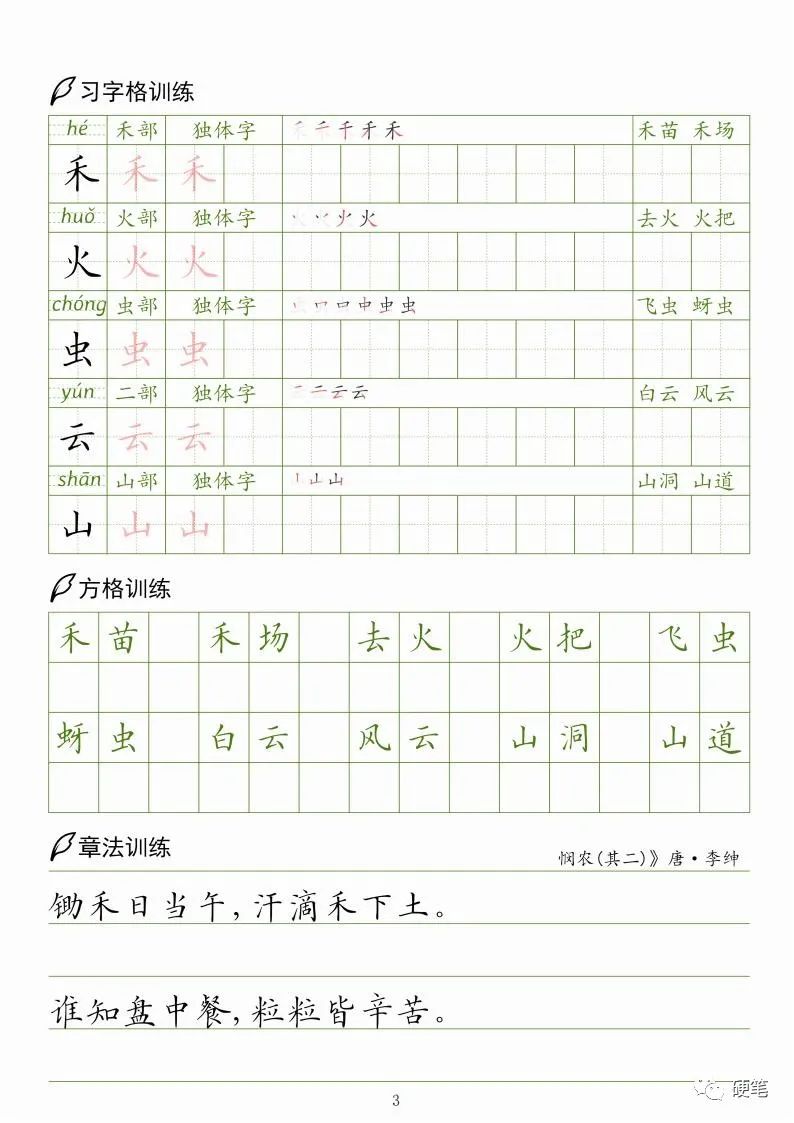 习字格训练
hé 禾部 独体字 禾苗 禾场
禾 禾 禾
huǒ 火部 独体字 去火 火把
火 火 火
chóng 虫部 独体字 飞虫 蚜虫
虫 虫 虫
yún 二部 独体字 白云 风云
云 云 云
shān 山部 独体字 山洞 山道
山 山 山
方格训练
禾苗 禾场 去火 火把 飞虫
蚜虫 白云 风云 山洞 山道
章法训练
悯农(其二)》唐·李绅
锄禾日当午,汗滴禾下土。
谁知盘中餐,粒粒皆辛苦。
3
硬笔